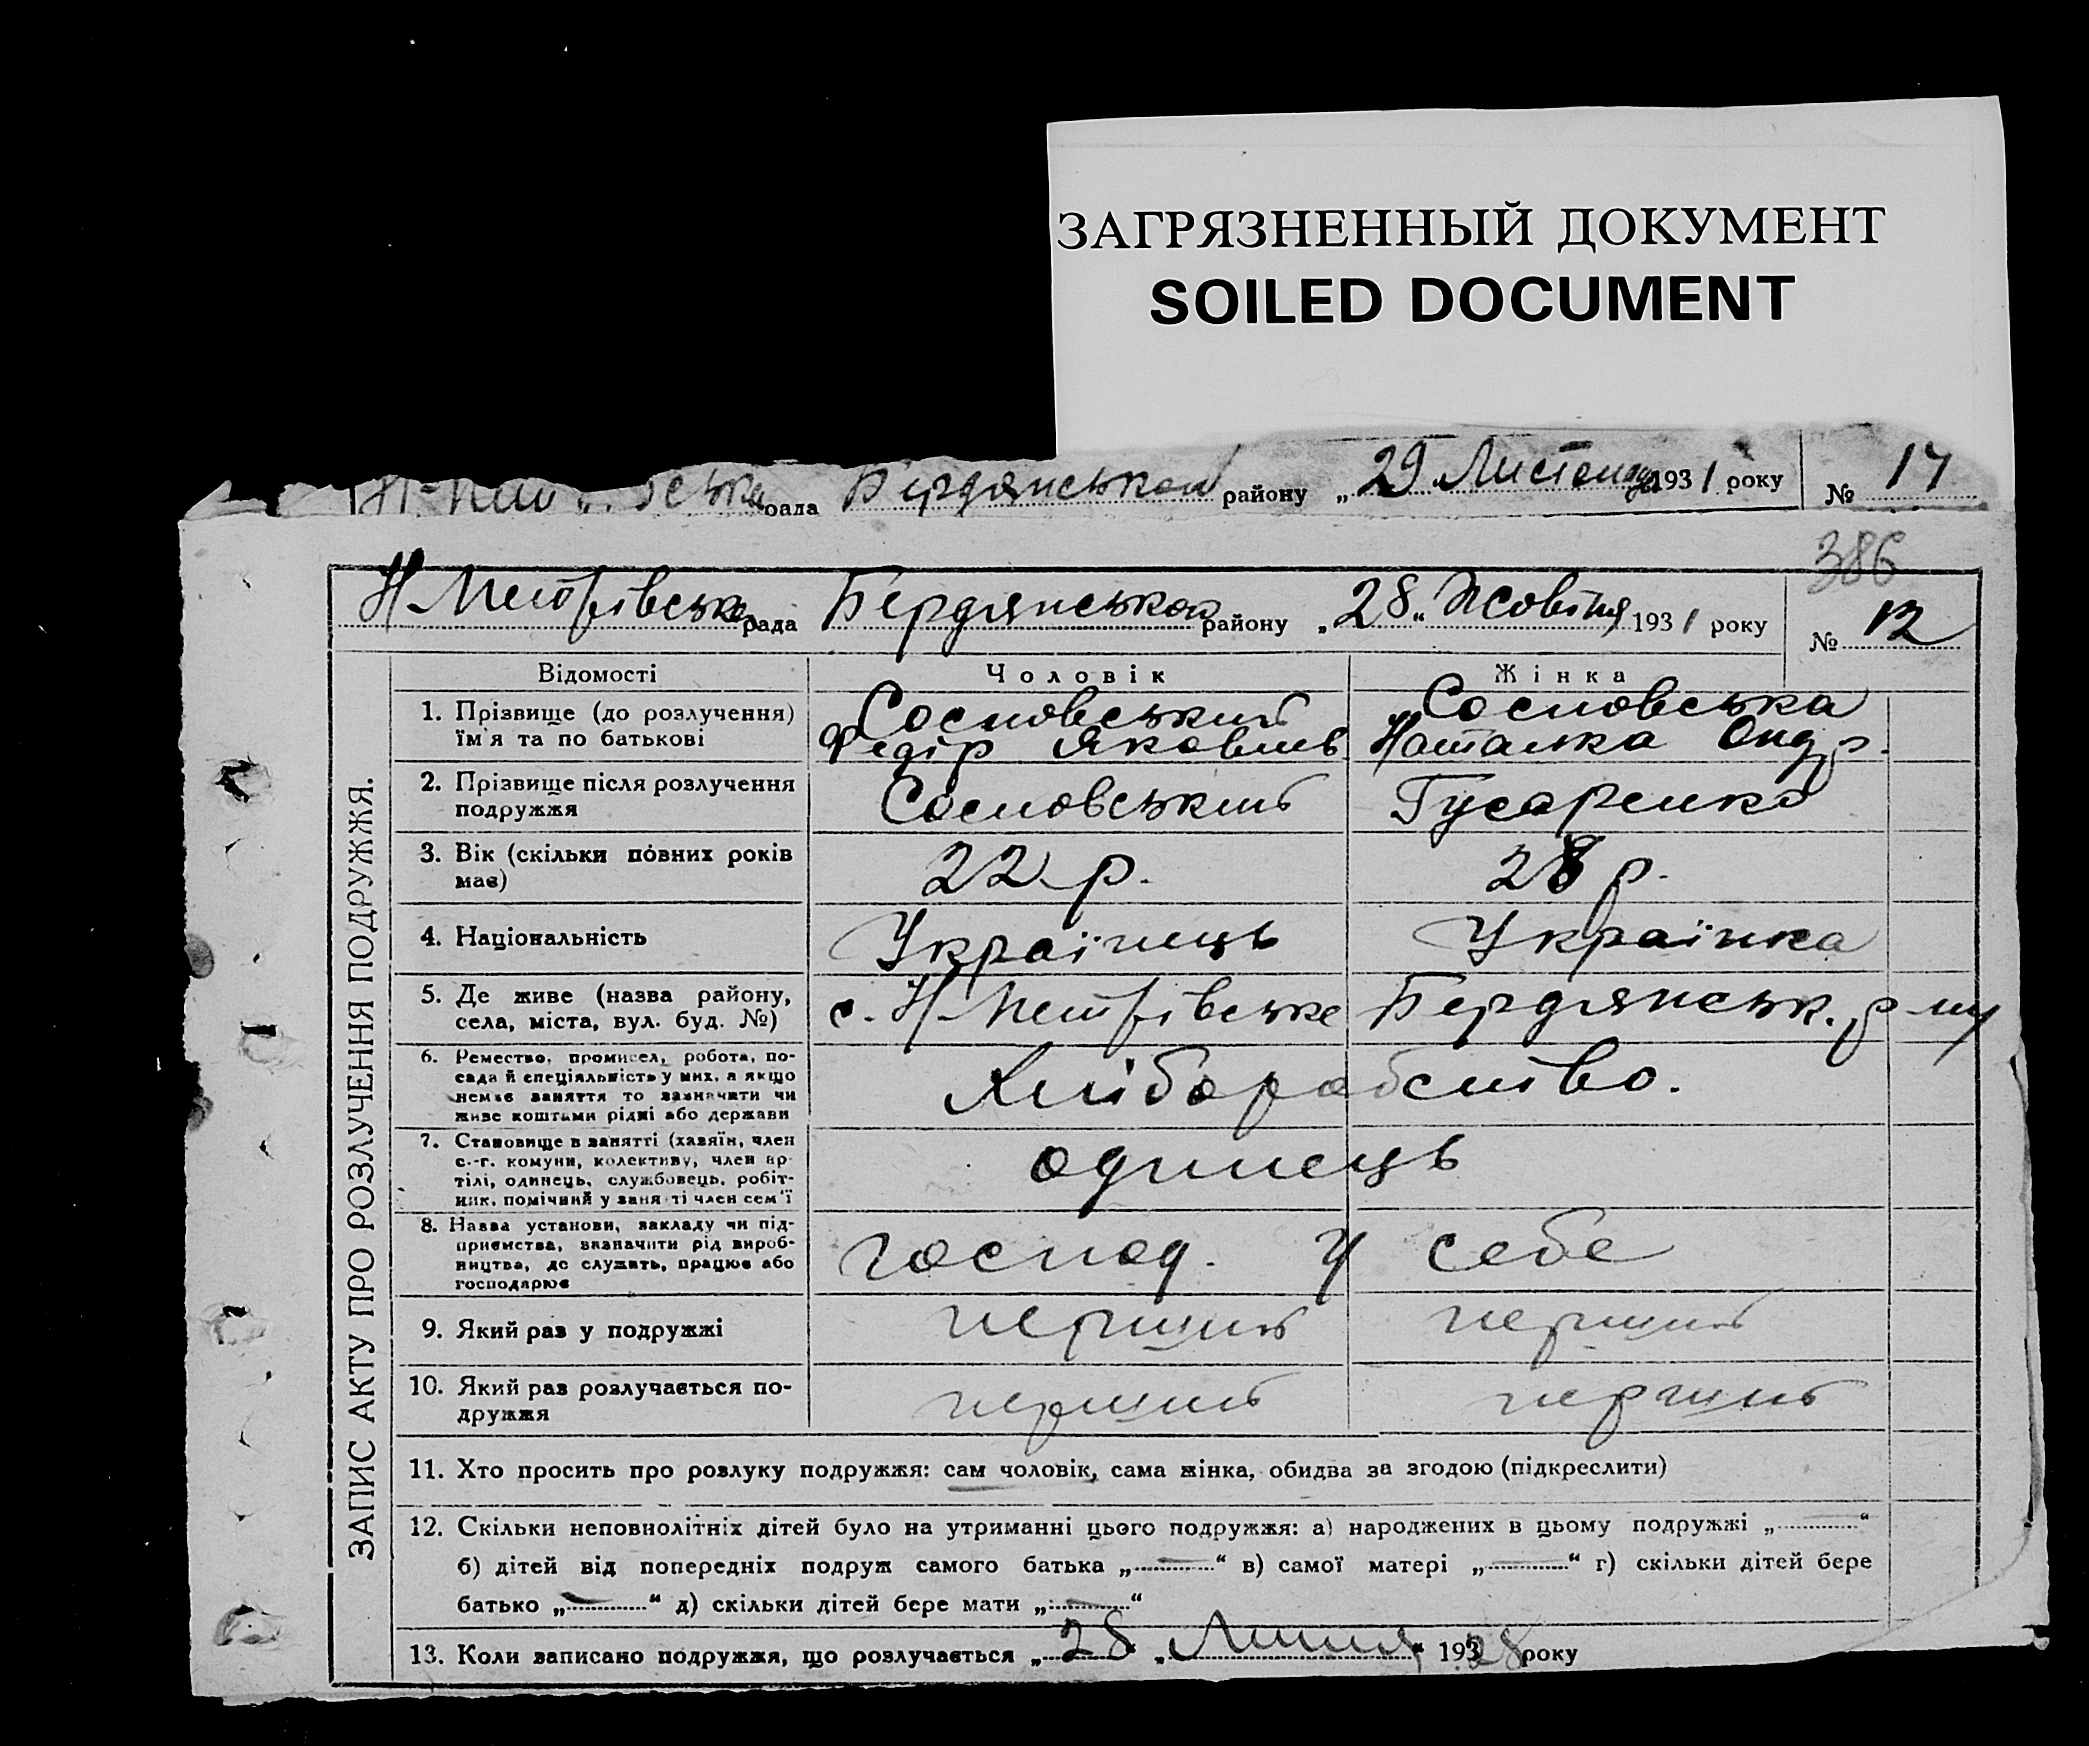 ЗАГРЯЗНЕННЫЙ ДОКУМЕНТ
SOILED DOCUMENT
рада Бердянського району „29 Листопада 1931 року № 17
386
Н Петрівська рада Бердянського району „28“ Жовтня 1931 року № 12
ЗАПИС АКТУ ПРО РОЗЛУЧЕННЯ ПОДРУЖЖЯ.
Відомості Чоловік Жінка
1. Прізвище (до розлучення) Сосновський Сосновська
ім'я та по батькові Федір Яковлів Наталка Андр.
2. Прізвище після розлучення Сосновський Гусаренко
подружжя
3. Вік (скільки повних років 22 р. 28 р.
має)
4. Національність Українець Українка
5. Де живе (назва району, с. Н Петрівське Бердянськ. р-ну
села, міста, вул. буд. №)
6. Ремество, промисел, робота, по-
сада й спеціяльність у них, а якщо Хліборобство.
немає заняття то зазначити чи
живе коштами рідні або держави
7. Становище в занятті (хазяїн, член
с.-г. комуни, колективу, член ар- одинець
тілі, одинець, службовець, робіт-
ник, помічний у занятті член сем'ї
8. Назва установи, закладу чи під-
приємства, визначити рід вироб- господ. у себе
ництва, де служать, працює або
господарює
9. Який раз у подружжі перший перший
10. Який раз розлучається по- перший перший
дружжя
11. Хто просить про розлуку подружжя: сам чоловік, сама жінка, обидва за згодою (підкреслити)
12. Скільки неповнолітніх дітей було на утриманні цього подружжя: а) народжених в цьому подружжі „—“
б) дітей від попередніх подруж самого батька „—“ в) самої матері „—“ г) скільки дітей бере
батько „—“ д) скільки дітей бере мати „—“
13. Коли записано подружжя, що розлучається „28 „Липня“ 19328 року